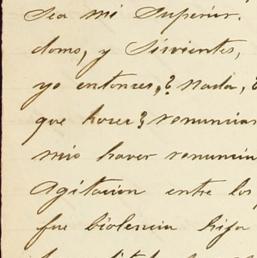 Sea mi Superior.
domo, y Sirvientes,
yo entonces, ? Nada, ?
que hacer? renuncias
mis haver renuncia
Agitacion entre los
fue biolencia hija